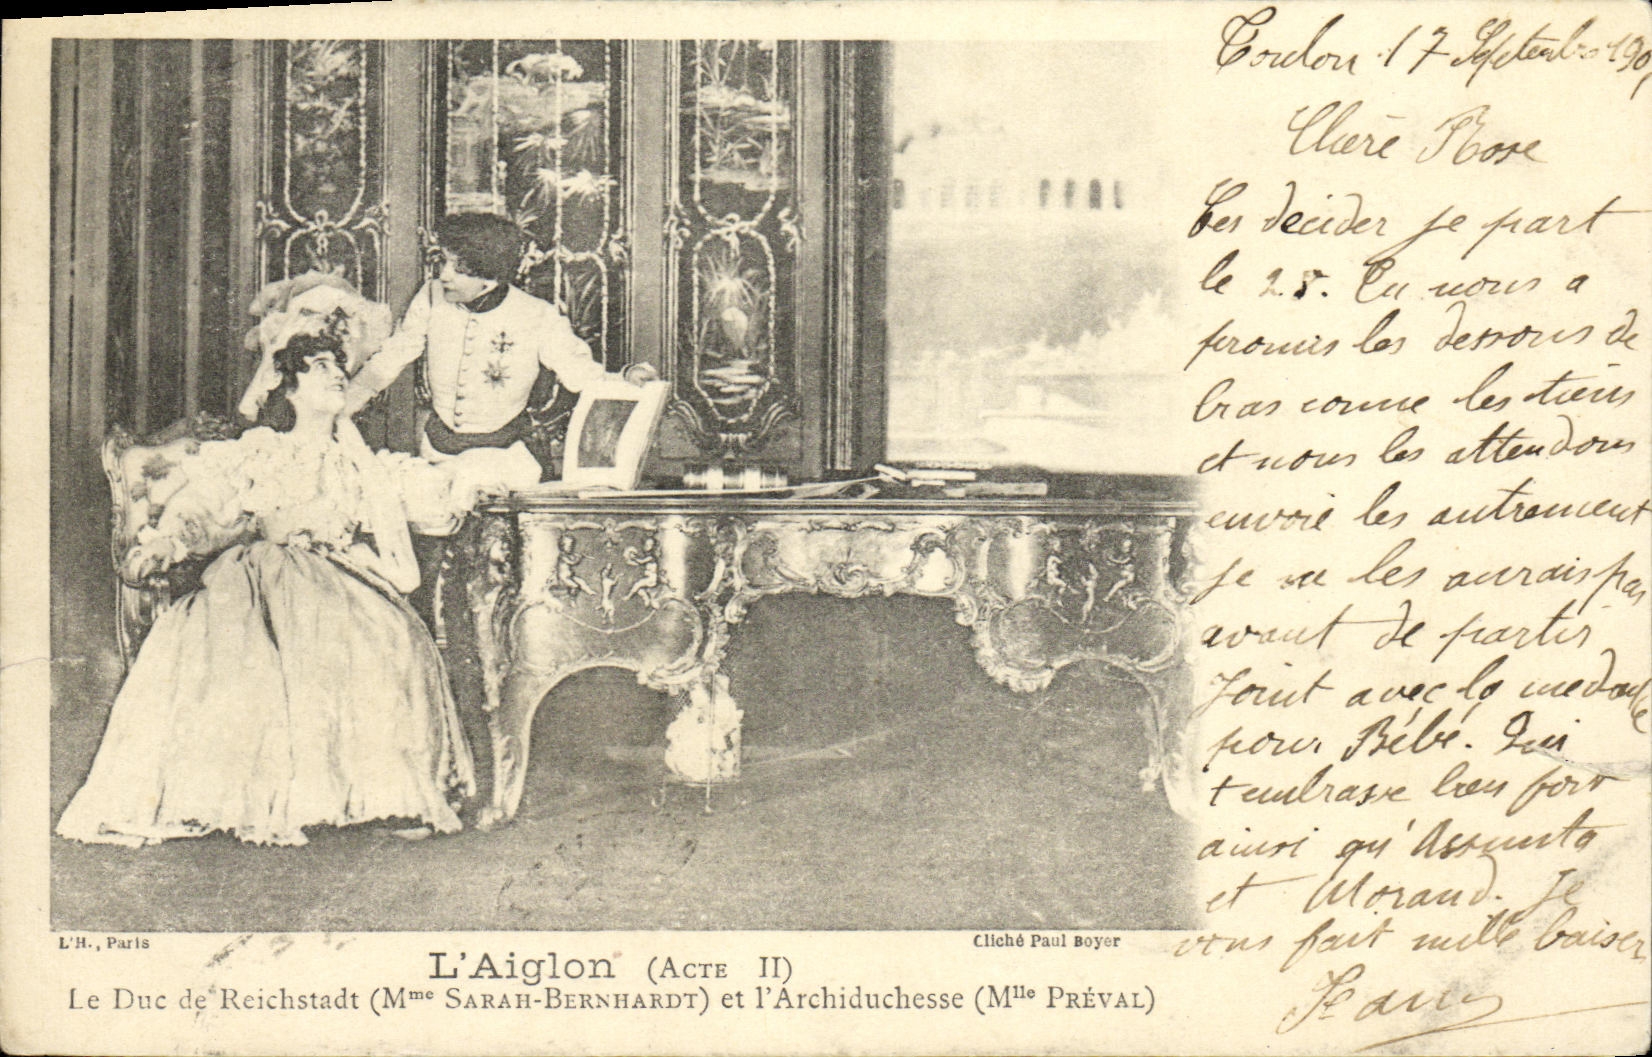 Toulon 17 Septembre 190
Chère Rose
Ces décider je part
le 28. Tu nous a
promis les dessous de
bras comme les tiens
et nous les attendons
envoie les autrement
je ne les aurais pas
avant de partir
Joint avec la medaille
pour Bébé. Qui
t embrasse bien fort
ainsi qu' Assunta
et Morand. Je
vous fait mille baiser
L'H., Paris
Cliché Paul Boyer
L'Aiglon (Acte II)
Le Duc de Reichstadt (Mme Sarah-Bernhardt) et l'Archiduchesse (Mlle Préval)